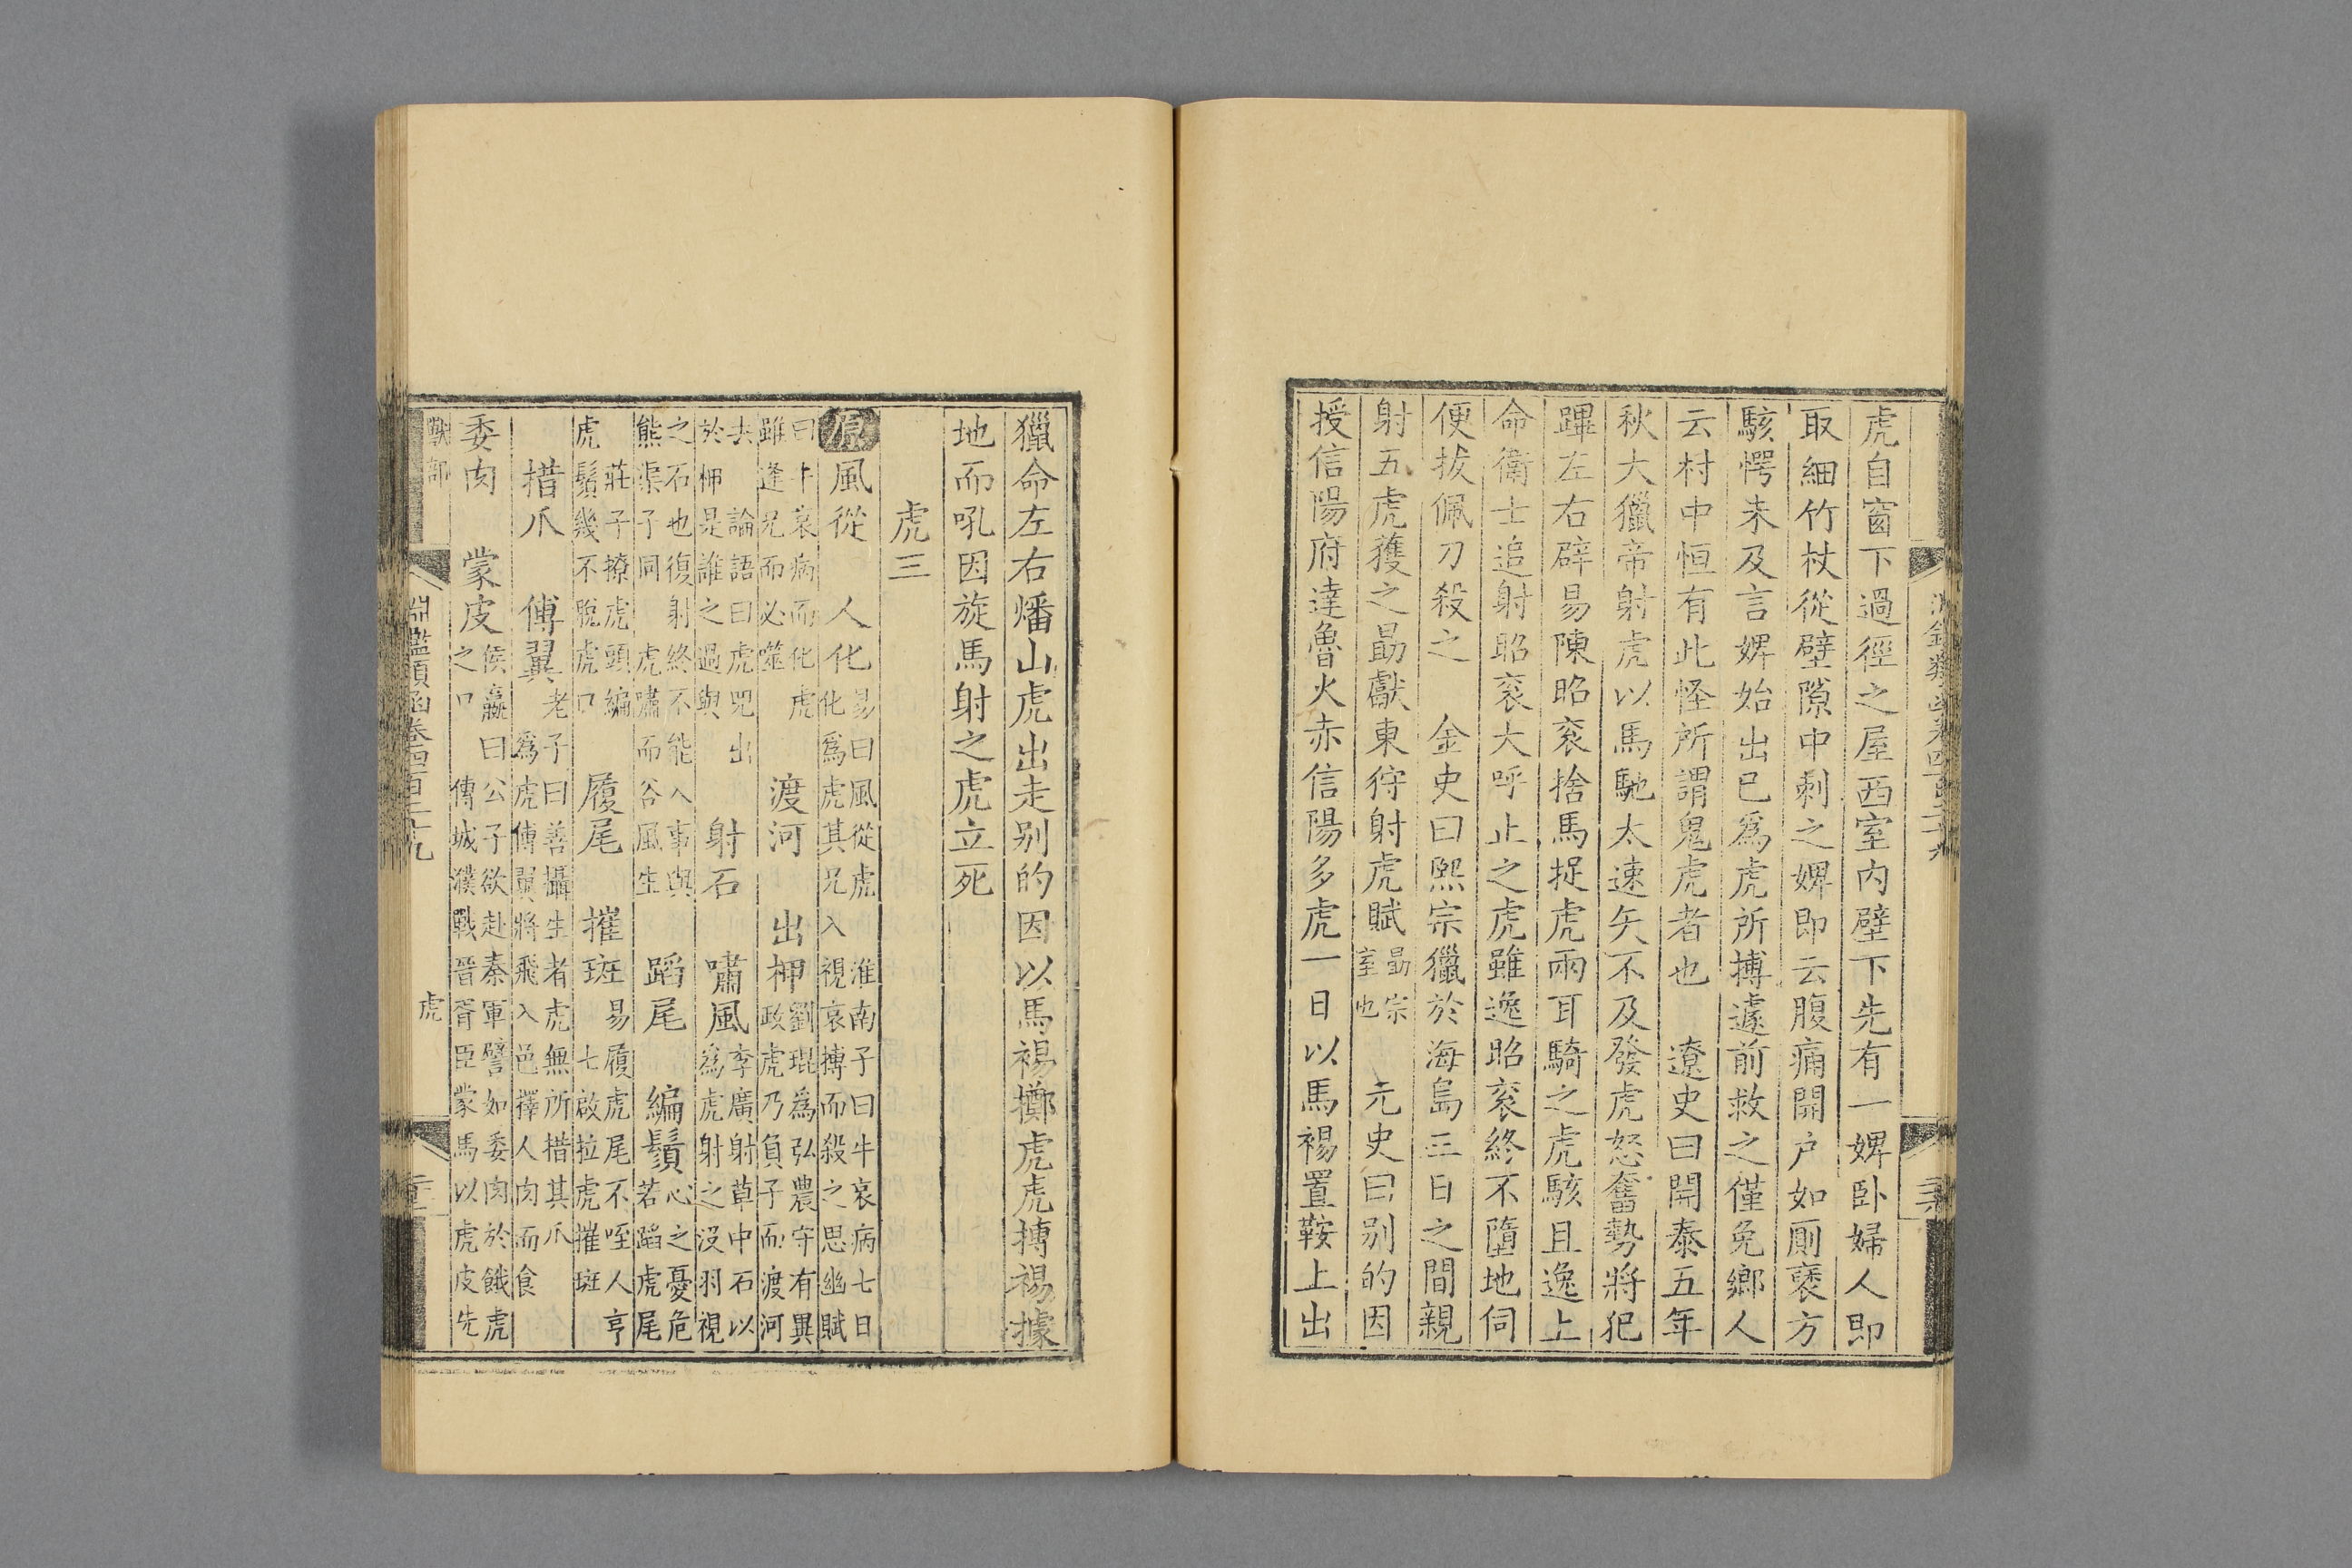 虎自窗下過徑之屋西室內壁下先有一婢卧婦人即
取細竹杖從壁隙中刺之婢即云腹痛開户如厠褁方
駭愕未及言婢始出已爲虎所搏遽前救之僅免鄉人
云村中恒有此怪所謂鬼虎者也　遼史曰開泰五年
秋大獵帝射虎以馬馳太速矢不及發虎怒奮勢將犯
蹕左右辟易陳昭衮捨馬捉虎兩耳騎之虎駭且逸上
命衛士追射昭衮大呼止之虎雖逸昭衮終不墮地伺
便拔佩刀殺之　金史曰熙宗獵於海島三日之間親
射五虎獲之勗獻東狩射虎賦勗宗室也　元史曰别的因
授信陽府達魯火赤信陽多虎一日以馬裼置鞍上出
獵命左右燔山虎出走别的因以馬裼擲虎虎搏裼據
地而吼因旋馬射之虎立死
虎三
原風從　人化易曰風從虎　淮南子曰牛哀病七日化爲虎其兄入視哀搏而殺之思幽賦
曰牛哀病而化虎雖逢兄而必噬　渡河　出柙劉琨爲弘農守有異政虎乃負子而渡河
去　論語曰虎兕出於柙是誰之過與　射石　嘯風李廣射草中石以爲虎射之没羽視
之石也復射終不能入事與熊渠子同　虎嘯而谷風生　蹈尾　編鬚心之憂危若蹈虎尾
莊子撩虎頭編虎鬚幾不脫虎口　履尾　摧斑易履虎尾不咥人亨　七啟拉虎摧斑
措爪　傅翼老子曰善攝生者虎無所措其爪　爲虎傅翼將飛入邑擇人肉而食
委肉　蒙皮侯嬴曰公子欲赴秦軍譬如委肉於餓虎之口　傳城濮戰晉胥臣蒙馬以虎皮先
獸部　淵鑑類函卷四百二十九　虎